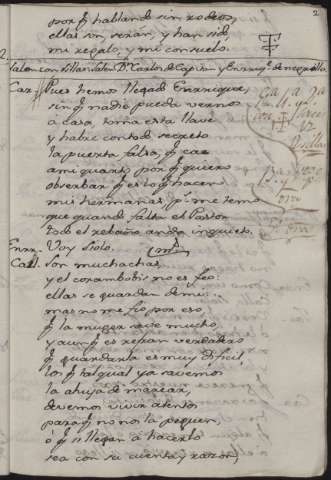 2
porq hablando sin rodeos,
ellas son, serán, y han sido
mi regalo, y mi consuelo.
2. Salon con sillas: Salen Dn Carlos de Capitan y Enrriqe de negrillo
Car. Pues hemos llegado Enrrique,
sin q nadie pueda vernos
à casa, toma esta llave
y habre con todo secreto
la puerta falsa, q cae
a mi quarto, porq quiero
observar q es lo q hacen
mis hermanas, ps me temo
que quando falta el Pastor
todo el rebaño anda inquieto.
Enrr. Voy solo.
Carl. Son muchachas,
y el corambobis no es feo:
ellas se guardan de mi
mas no me fio por eso,
q la muger save mucho,
y aunq es refran verdadero
q guardarla es muy dificil,
los q tal qual ya savemos
la ahuja de marear,
devemos vivir atentos
para q no nos la peguen,
ò q si llegan à hacerlo
sea con su cuenta y razon,